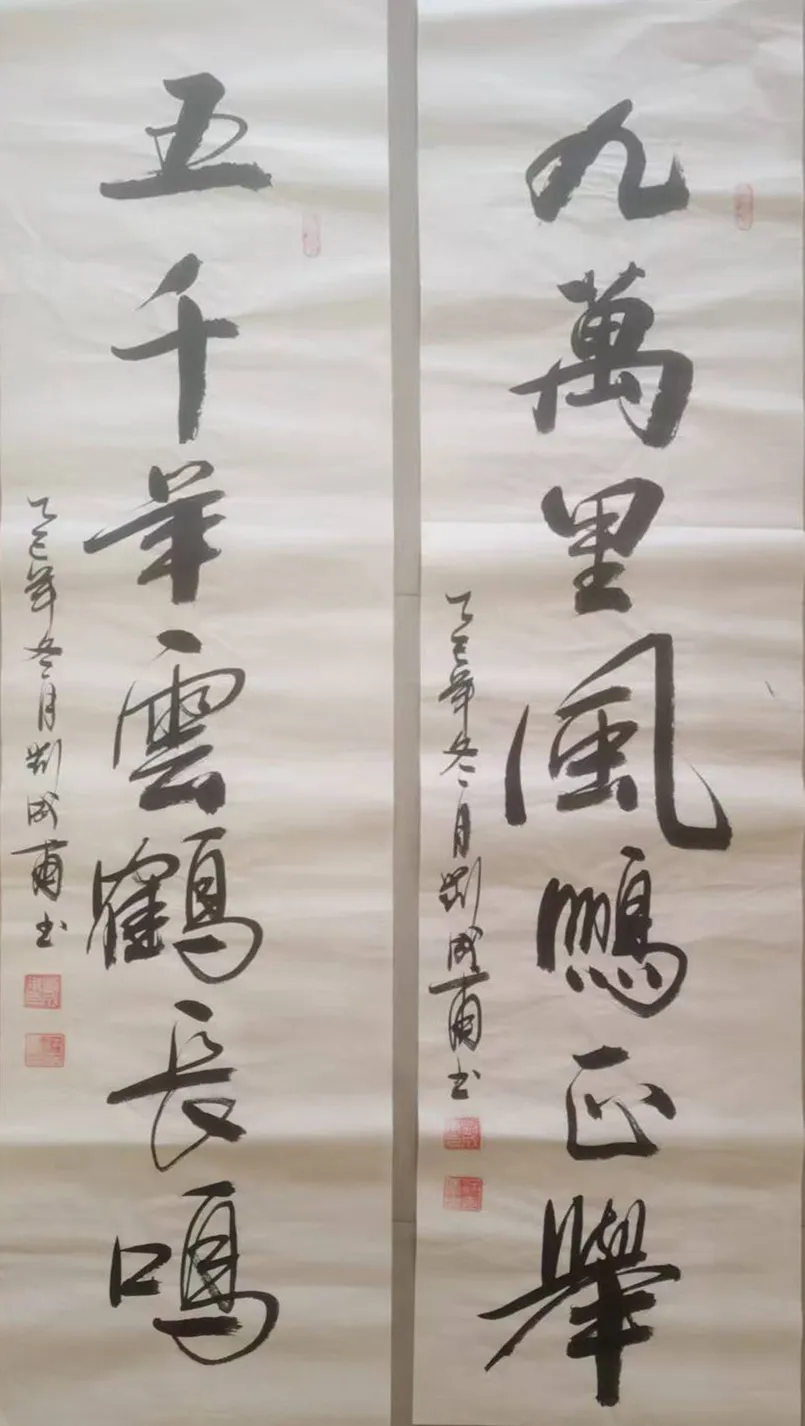 九萬里風鵬正舉
乙巳年冬月劉成甫书
五千年雲鶴長鳴
乙巳年冬月劉成甫书